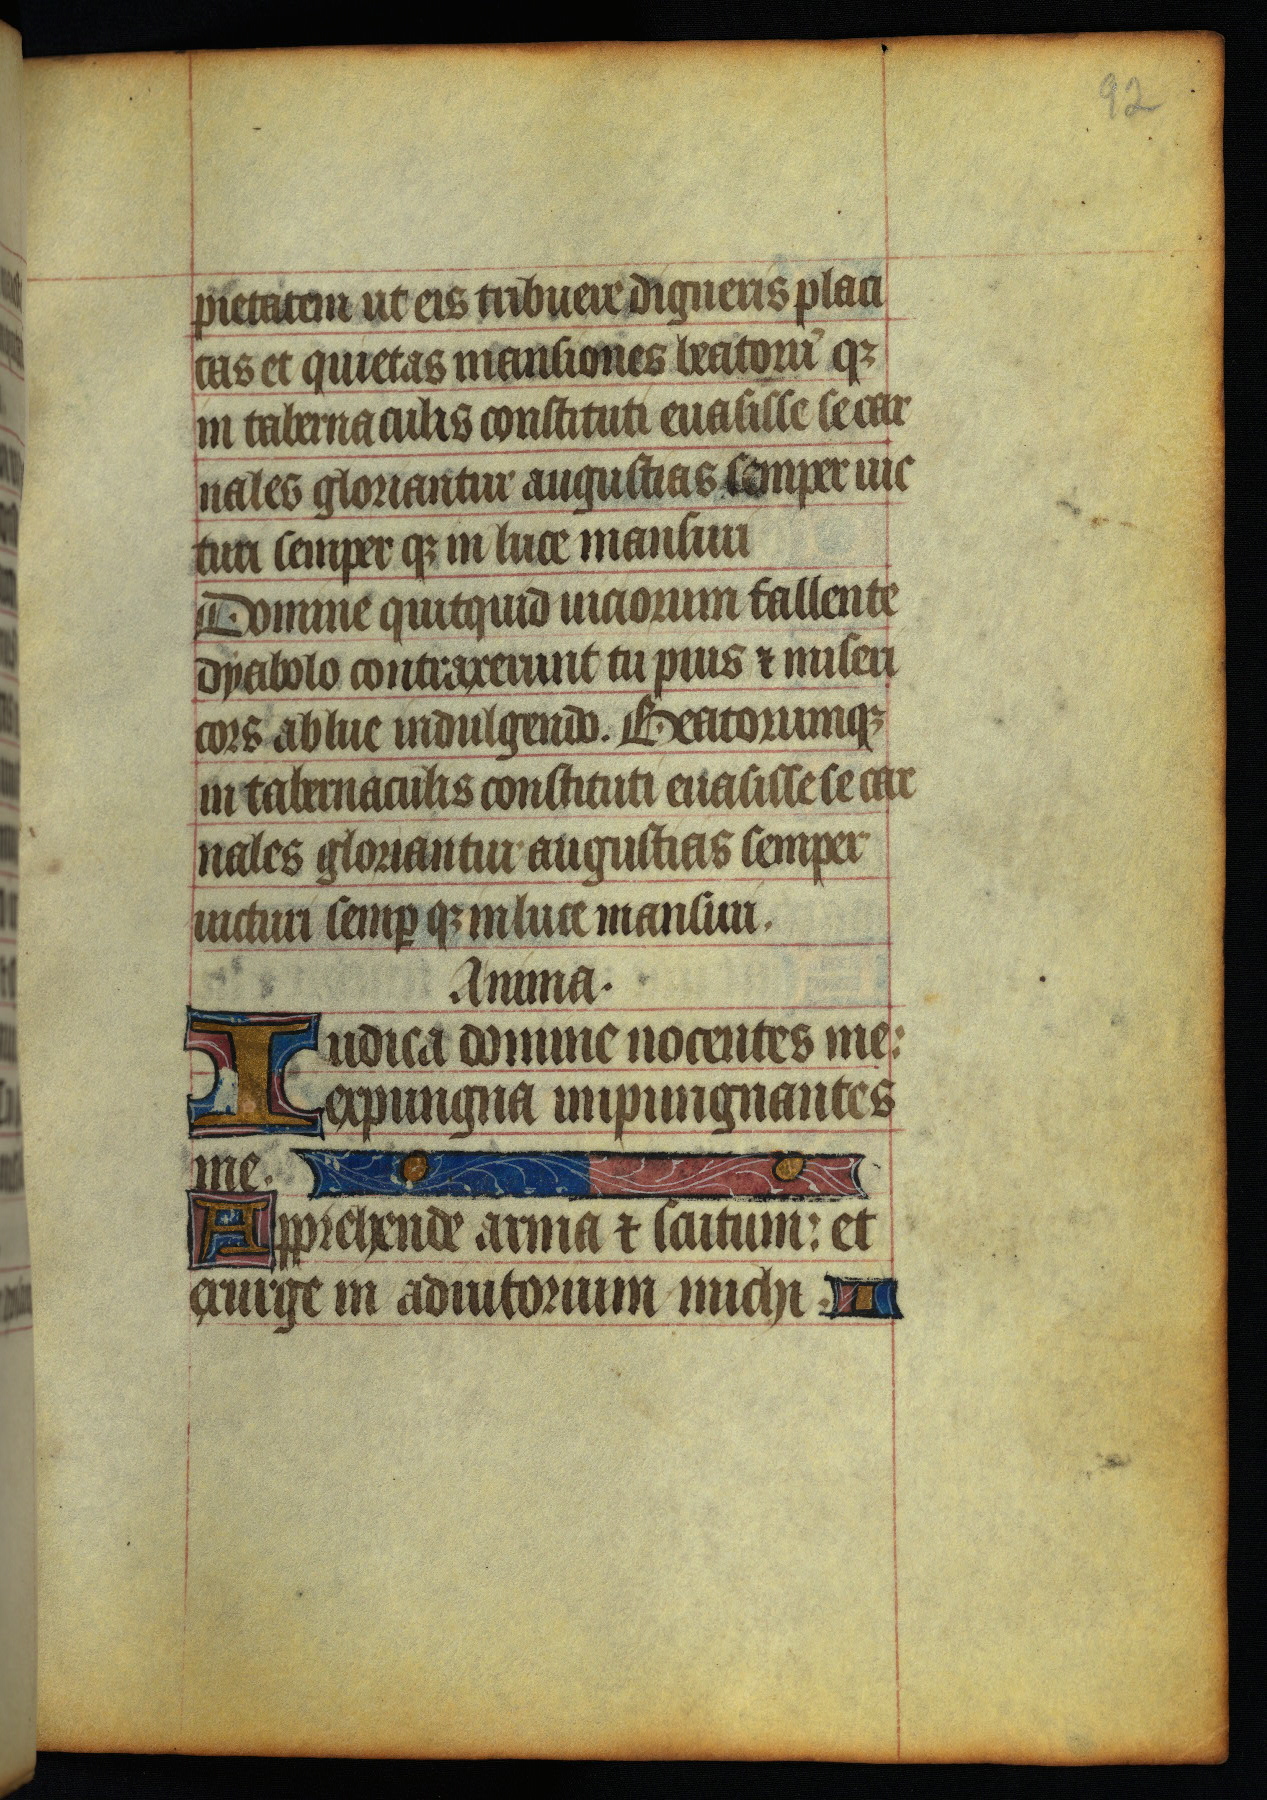 92
pietatem ut eis tribuere digneris placi
tas et quietas mansiones beatoru̅ qꝫ
in tabernaculis constituti euasisse se car
nales gloriantur augustias semper uic
turi semper qꝫ in luce mansuri
Domine quitquid uiciorum fallente
dyabolo contraxerunt tu pius ⁊ miseri
cors ablue indulgendo. Beatorumqꝫ
in tabernaculis constituti euasisse se car
nales gloriantur augustias semper
uicturi semꝑ qꝫ in luce mansuri.
Anima.
Iudica domine nocentes me:
expungna impungnantes
me.
Apprehende arma ⁊ scutum: et
exurge in adiutorium michi.